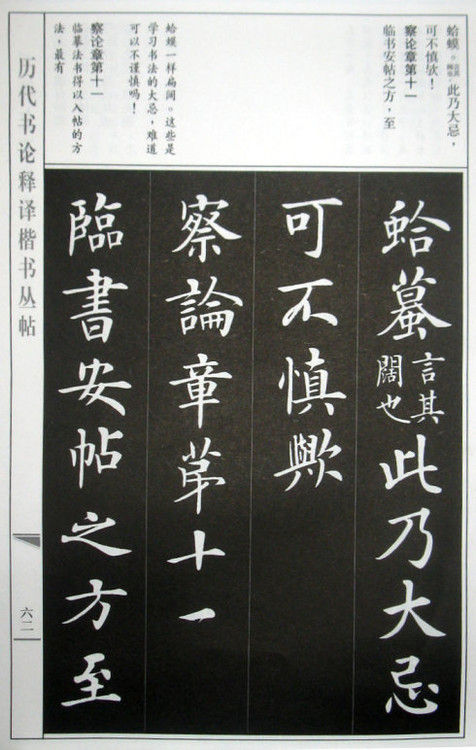 蛤蟆。言其阔也。此乃大忌,
可不慎欤!
察论章第十一
临书安帖之方,至
蛤蟆一样扁阔。这些是
学习书法的大忌,难道
可以不谨慎吗!
察论章第十一
临摹法书得以入帖的方
法,最有
蛤蟇言其闊也此乃大忌
可不慎歟
察論章第十一
臨書安帖之方至
历代书论释译楷书丛帖
六二